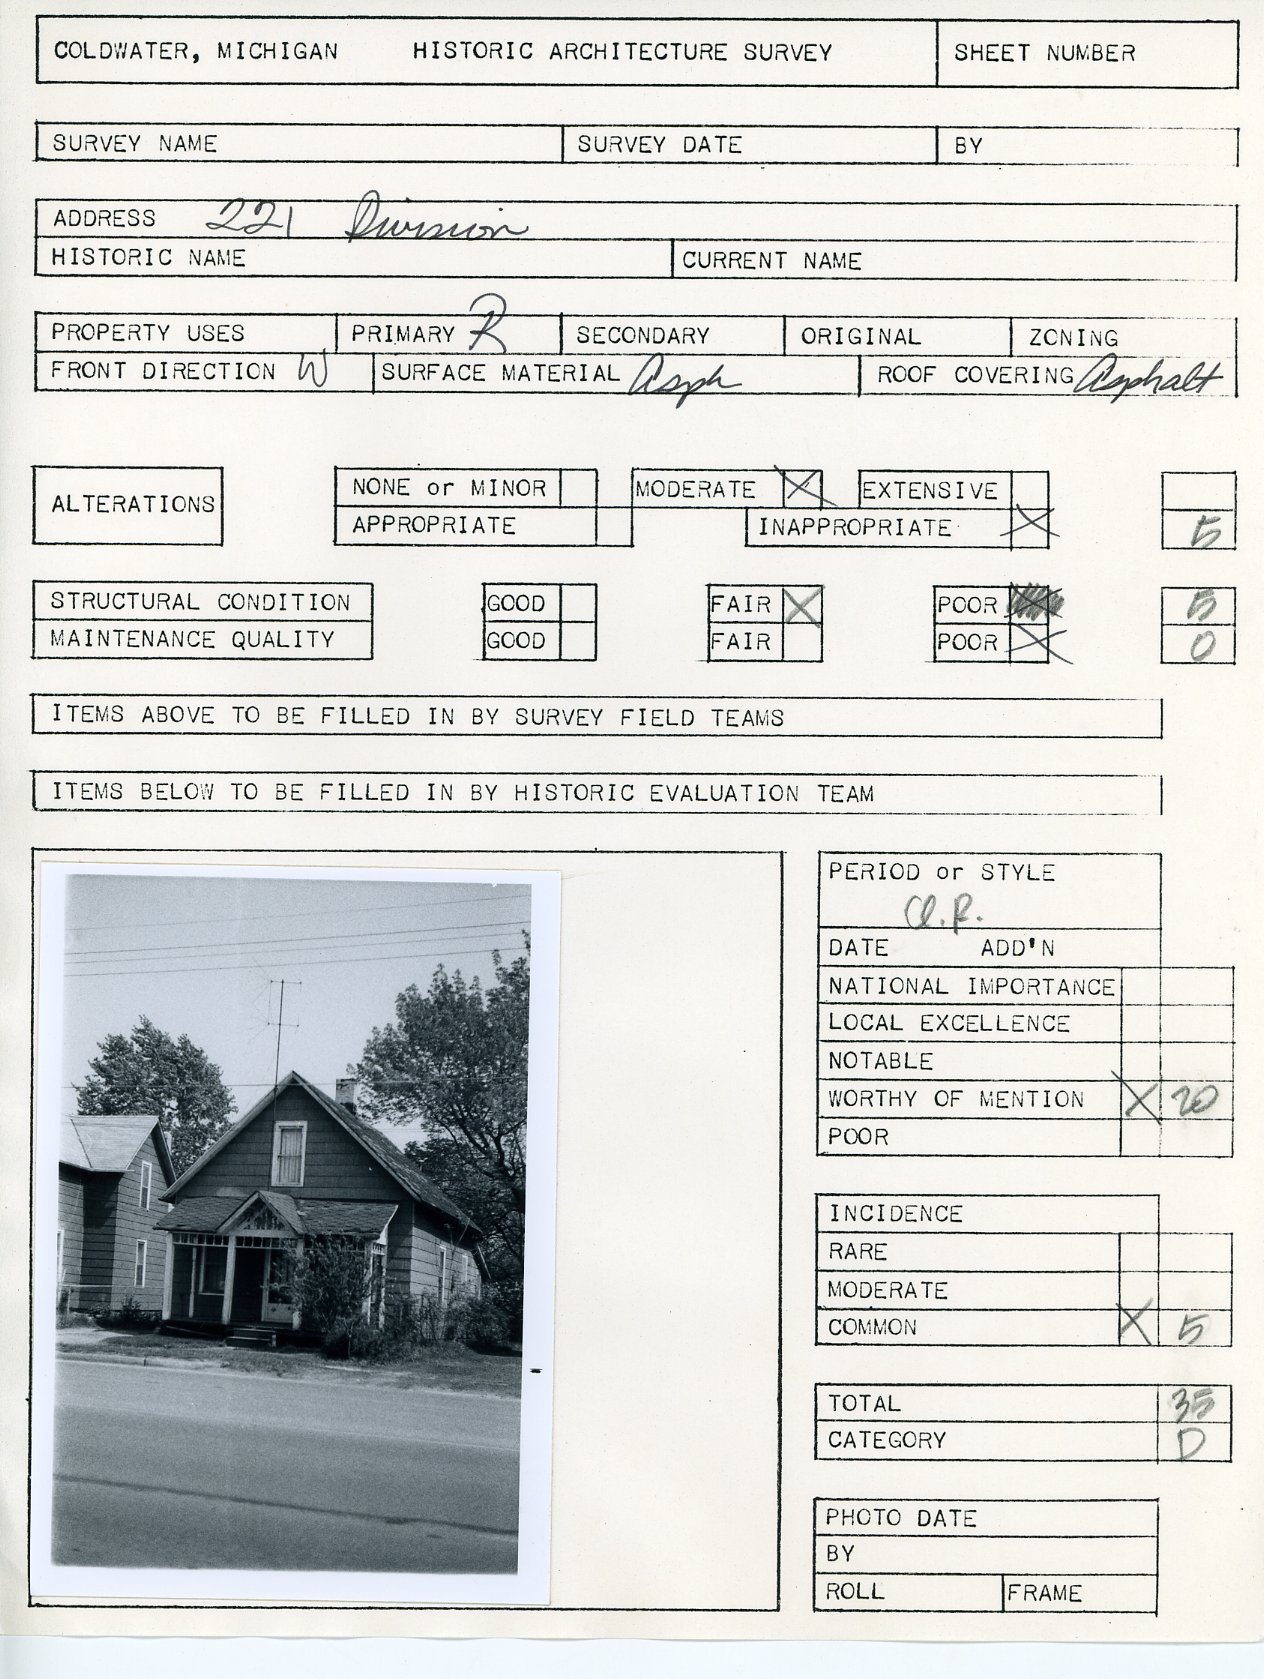 COLDWATER, MICHIGAN HISTORIC ARCHITECTURE SURVEY SHEET NUMBER
SURVEY NAME SURVEY DATE BY
ADDRESS 221 Division
HISTORIC NAME CURRENT NAME
PROPERTY USES PRIMARY R SECONDARY ORIGINAL ZONING
FRONT DIRECTION W SURFACE MATERIAL Asph ROOF COVERING Asphalt
ALTERATIONS
NONE or MINOR MODERATE X EXTENSIVE
APPROPRIATE INAPPROPRIATE X 5
STRUCTURAL CONDITION GOOD FAIR X POOR 5
MAINTENANCE QUALITY GOOD FAIR POOR X 0
ITEMS ABOVE TO BE FILLED IN BY SURVEY FIELD TEAMS
ITEMS BELOW TO BE FILLED IN BY HISTORIC EVALUATION TEAM
PERIOD or STYLE
DATE ADD'N
NATIONAL IMPORTANCE
LOCAL EXCELLENCE
NOTABLE
WORTHY OF MENTION X 20
POOR
INCIDENCE
RARE
MODERATE
COMMON X 5
TOTAL 35
CATEGORY D
PHOTO DATE
BY
ROLL FRAME